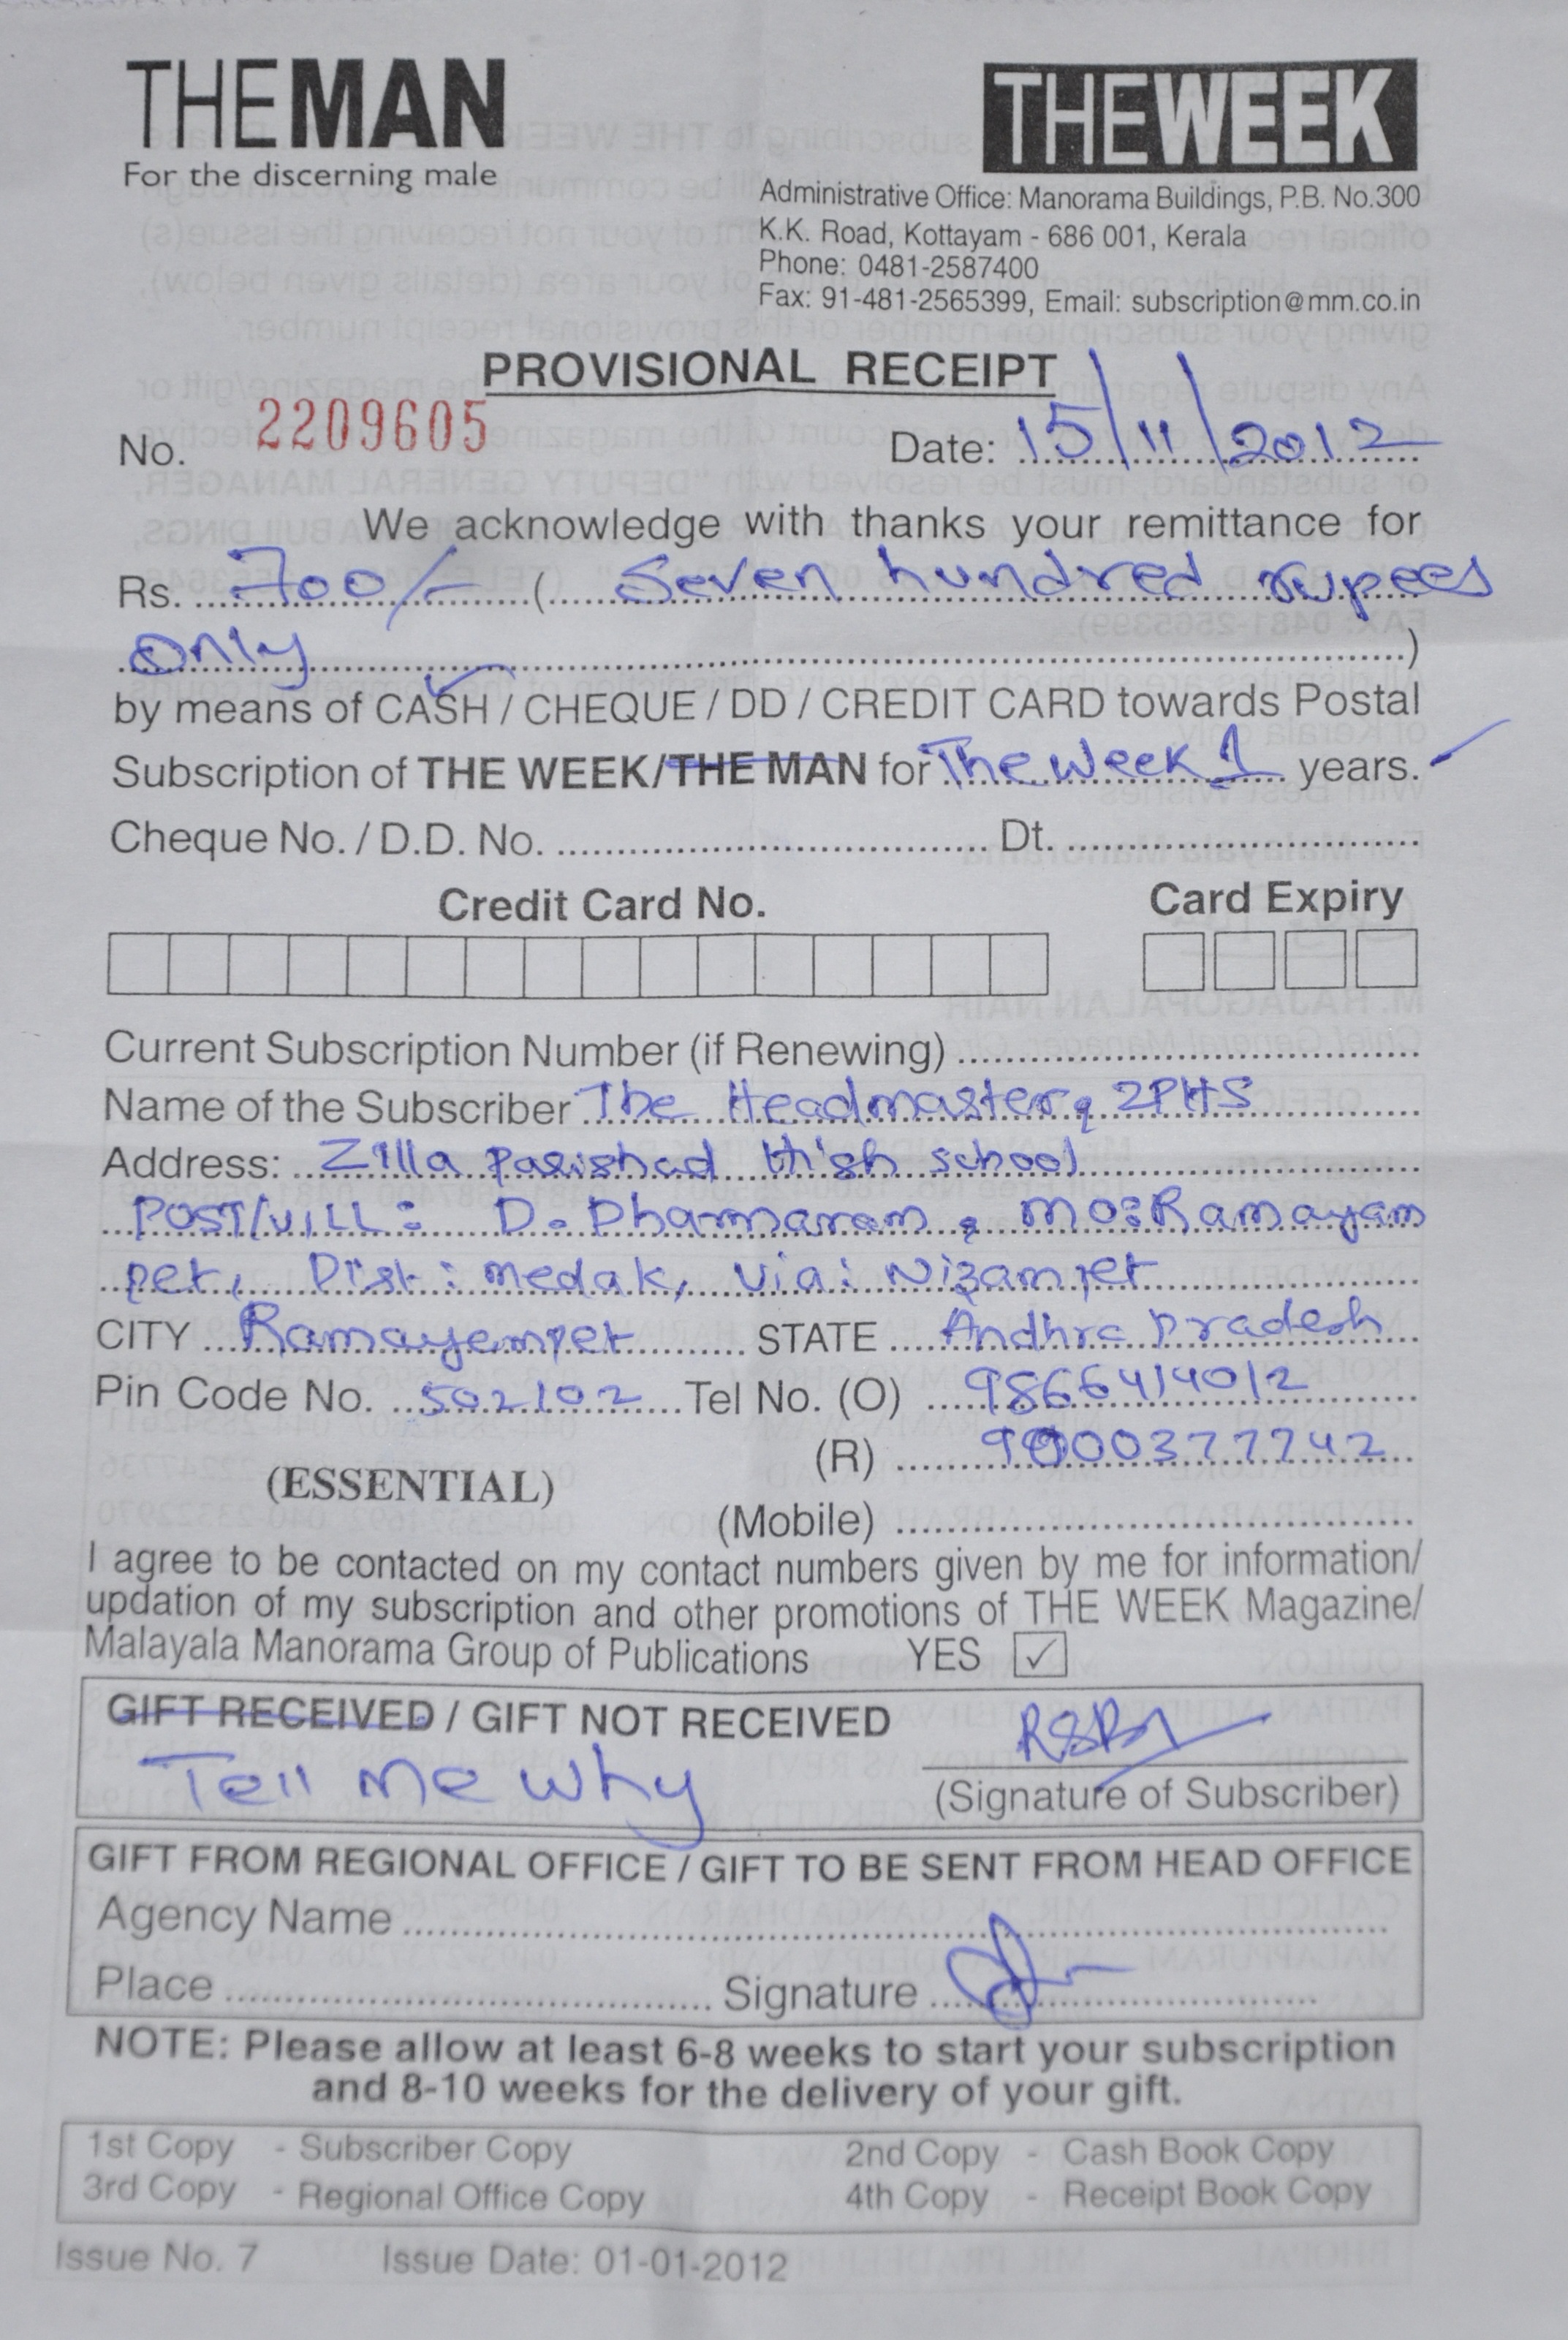 THEMAN
For the discerning male
THEWEEK
Administrative Office: Manorama Buildings, P.B. No.300
K.K. Road, Kottayam - 686 001, Kerala
Phone: 0481-2587400
Fax: 91-481-2565399, Email: subscription@mm.co.in
PROVISIONAL RECEIPT
No. 2209605 Date: 15/11/2012
We acknowledge with thanks your remittance for
Rs. 700/- ( Seven hundred rupees
only )
by means of CASH / CHEQUE / DD / CREDIT CARD towards Postal
Subscription of THE WEEK/THE MAN for The Week 1 years.
Cheque No. / D.D. No. Dt.
Credit Card No. Card Expiry
Current Subscription Number (if Renewing)
Name of the Subscriber The Headmaster, ZPHS
Address: Zilla Parishad High school
POST/VILL: D. Dharmaram, MO: Ramayam
pet, Dist: medak, via: Nizampet
CITY Ramayampet STATE Andhra Pradesh
Pin Code No. 502102 Tel No. (O) 9866414012
(R)
(ESSENTIAL)
(Mobile)
I agree to be contacted on my contact numbers given by me for information/
updation of my subscription and other promotions of THE WEEK Magazine/
Malayala Manorama Group of Publications YES ✓
GIFT RECEIVED / GIFT NOT RECEIVED
Tell Me Why
(Signature of Subscriber)
GIFT FROM REGIONAL OFFICE / GIFT TO BE SENT FROM HEAD OFFICE
Agency Name
Place Signature
NOTE: Please allow at least 6-8 weeks to start your subscription
and 8-10 weeks for the delivery of your gift.
1st Copy - Subscriber Copy 2nd Copy - Cash Book Copy
3rd Copy - Regional Office Copy 4th Copy - Receipt Book Copy
Issue No. 7 Issue Date: 01-01-2012